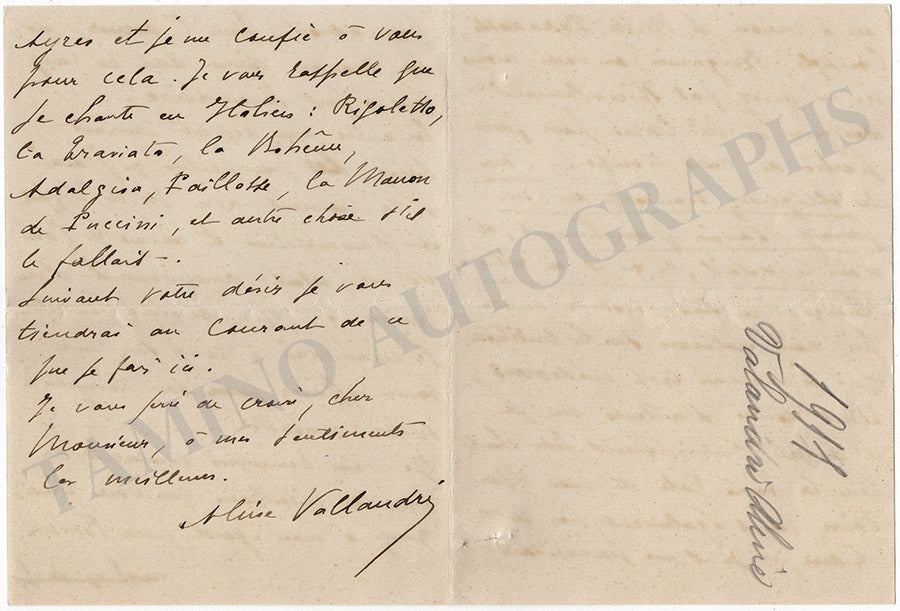 Ayres et je me confie à vous
pour cela. Je vous rappelle que
je chante en Italien : Rigoletto,
La Traviata, la Bohême,
Adalgisa, Paillasse, la Manon
de Puccini, et autre chose s'il
le fallait -.
Suivant votre désir je vous
tiendrai au courant de ce
que je fais ici.
Je vous prie de croire, cher
Monsieur, à mes sentiments
les meilleurs.
Aline Vallandri
1917
Vallandri Aline
TAMINO AUTOGRAPHS